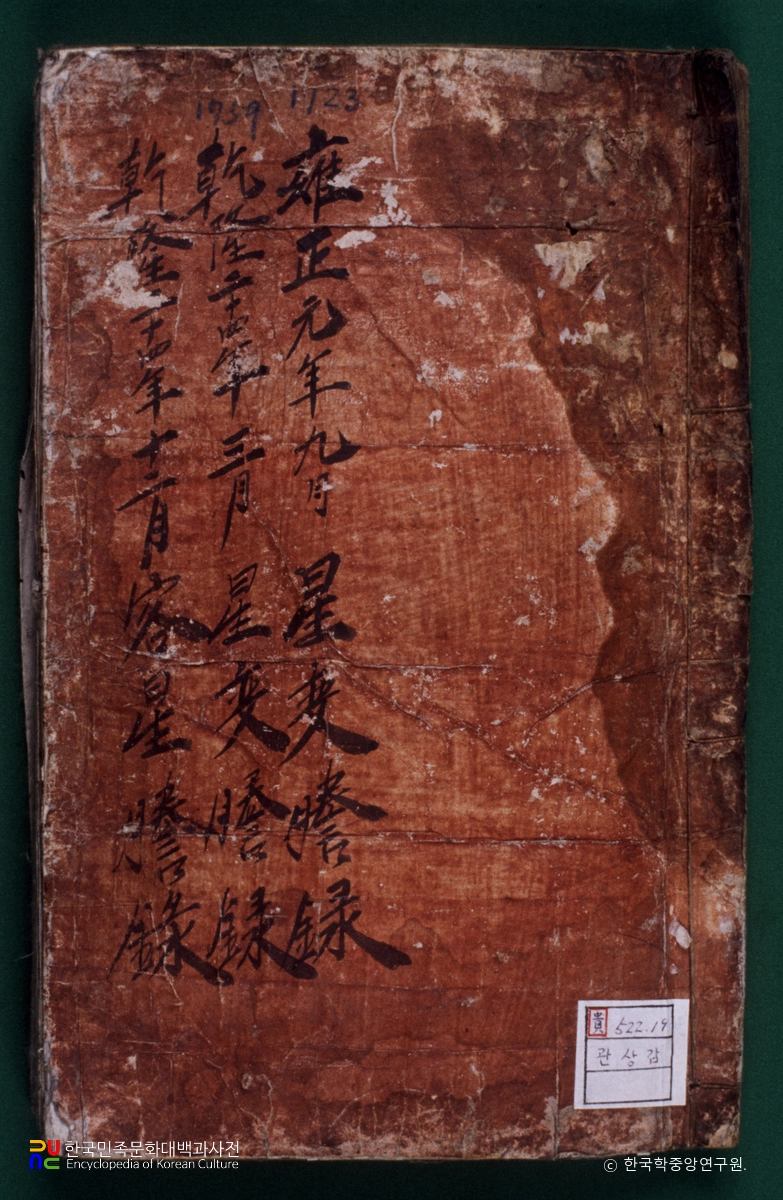 1723
雍正元年九月 星変謄録
1759
乾隆二十四年三月 星変謄録
乾隆二十四年十二月 客星謄錄
貴 522.19
관상감
한국민족문화대백과사전
Encyclopedia of Korean Culture
ⓒ 한국학중앙연구원.